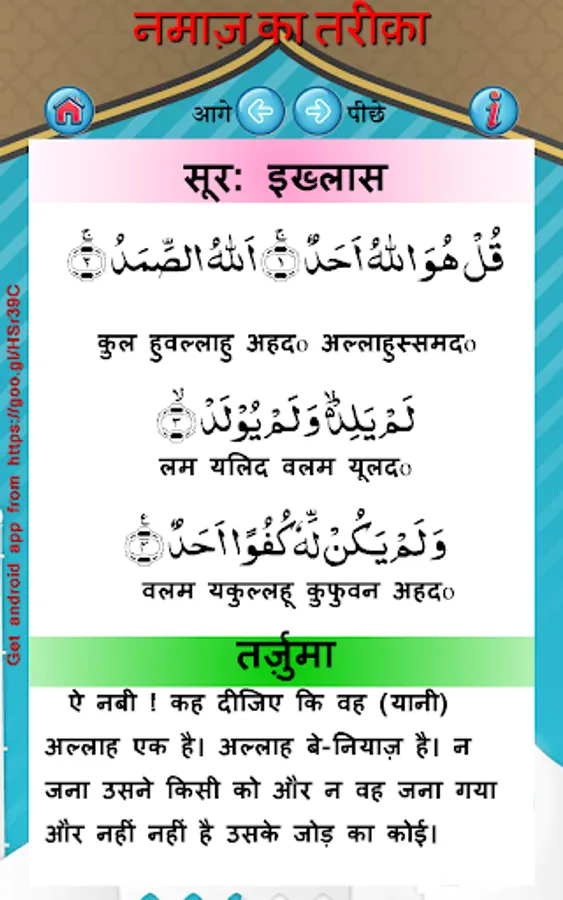 नमाज़ का तरीक़ा
आगे पीछे
सूर: इख्लास
قُلْ هُوَ اللّٰهُ اَحَدٌ ۚ﴿۱﴾ اَللّٰهُ الصَّمَدُ ۚ﴿۲﴾
कुल हुवल्लाहु अहद० अल्लाहुस्समद०
لَمْ يَلِدْ ۙ۬ وَلَمْ يُوْلَدْ ۙ﴿۳﴾
लम यलिद वलम यूलद०
وَلَمْ يَكُنْ لَّهٗ كُفُوًا اَحَدٌ
वलम यकुल्लहू कुफुवन अहद०
तर्जुमा
ऐ नबी ! कह दीजिए कि वह (यानी)
अल्लाह एक है। अल्लाह बे-नियाज़ है। न
जना उसने किसी को और न वह जना गया
और नहीं नहीं है उसके जोड़ का कोई।
Get android app from https://goo.gl/HSr39C